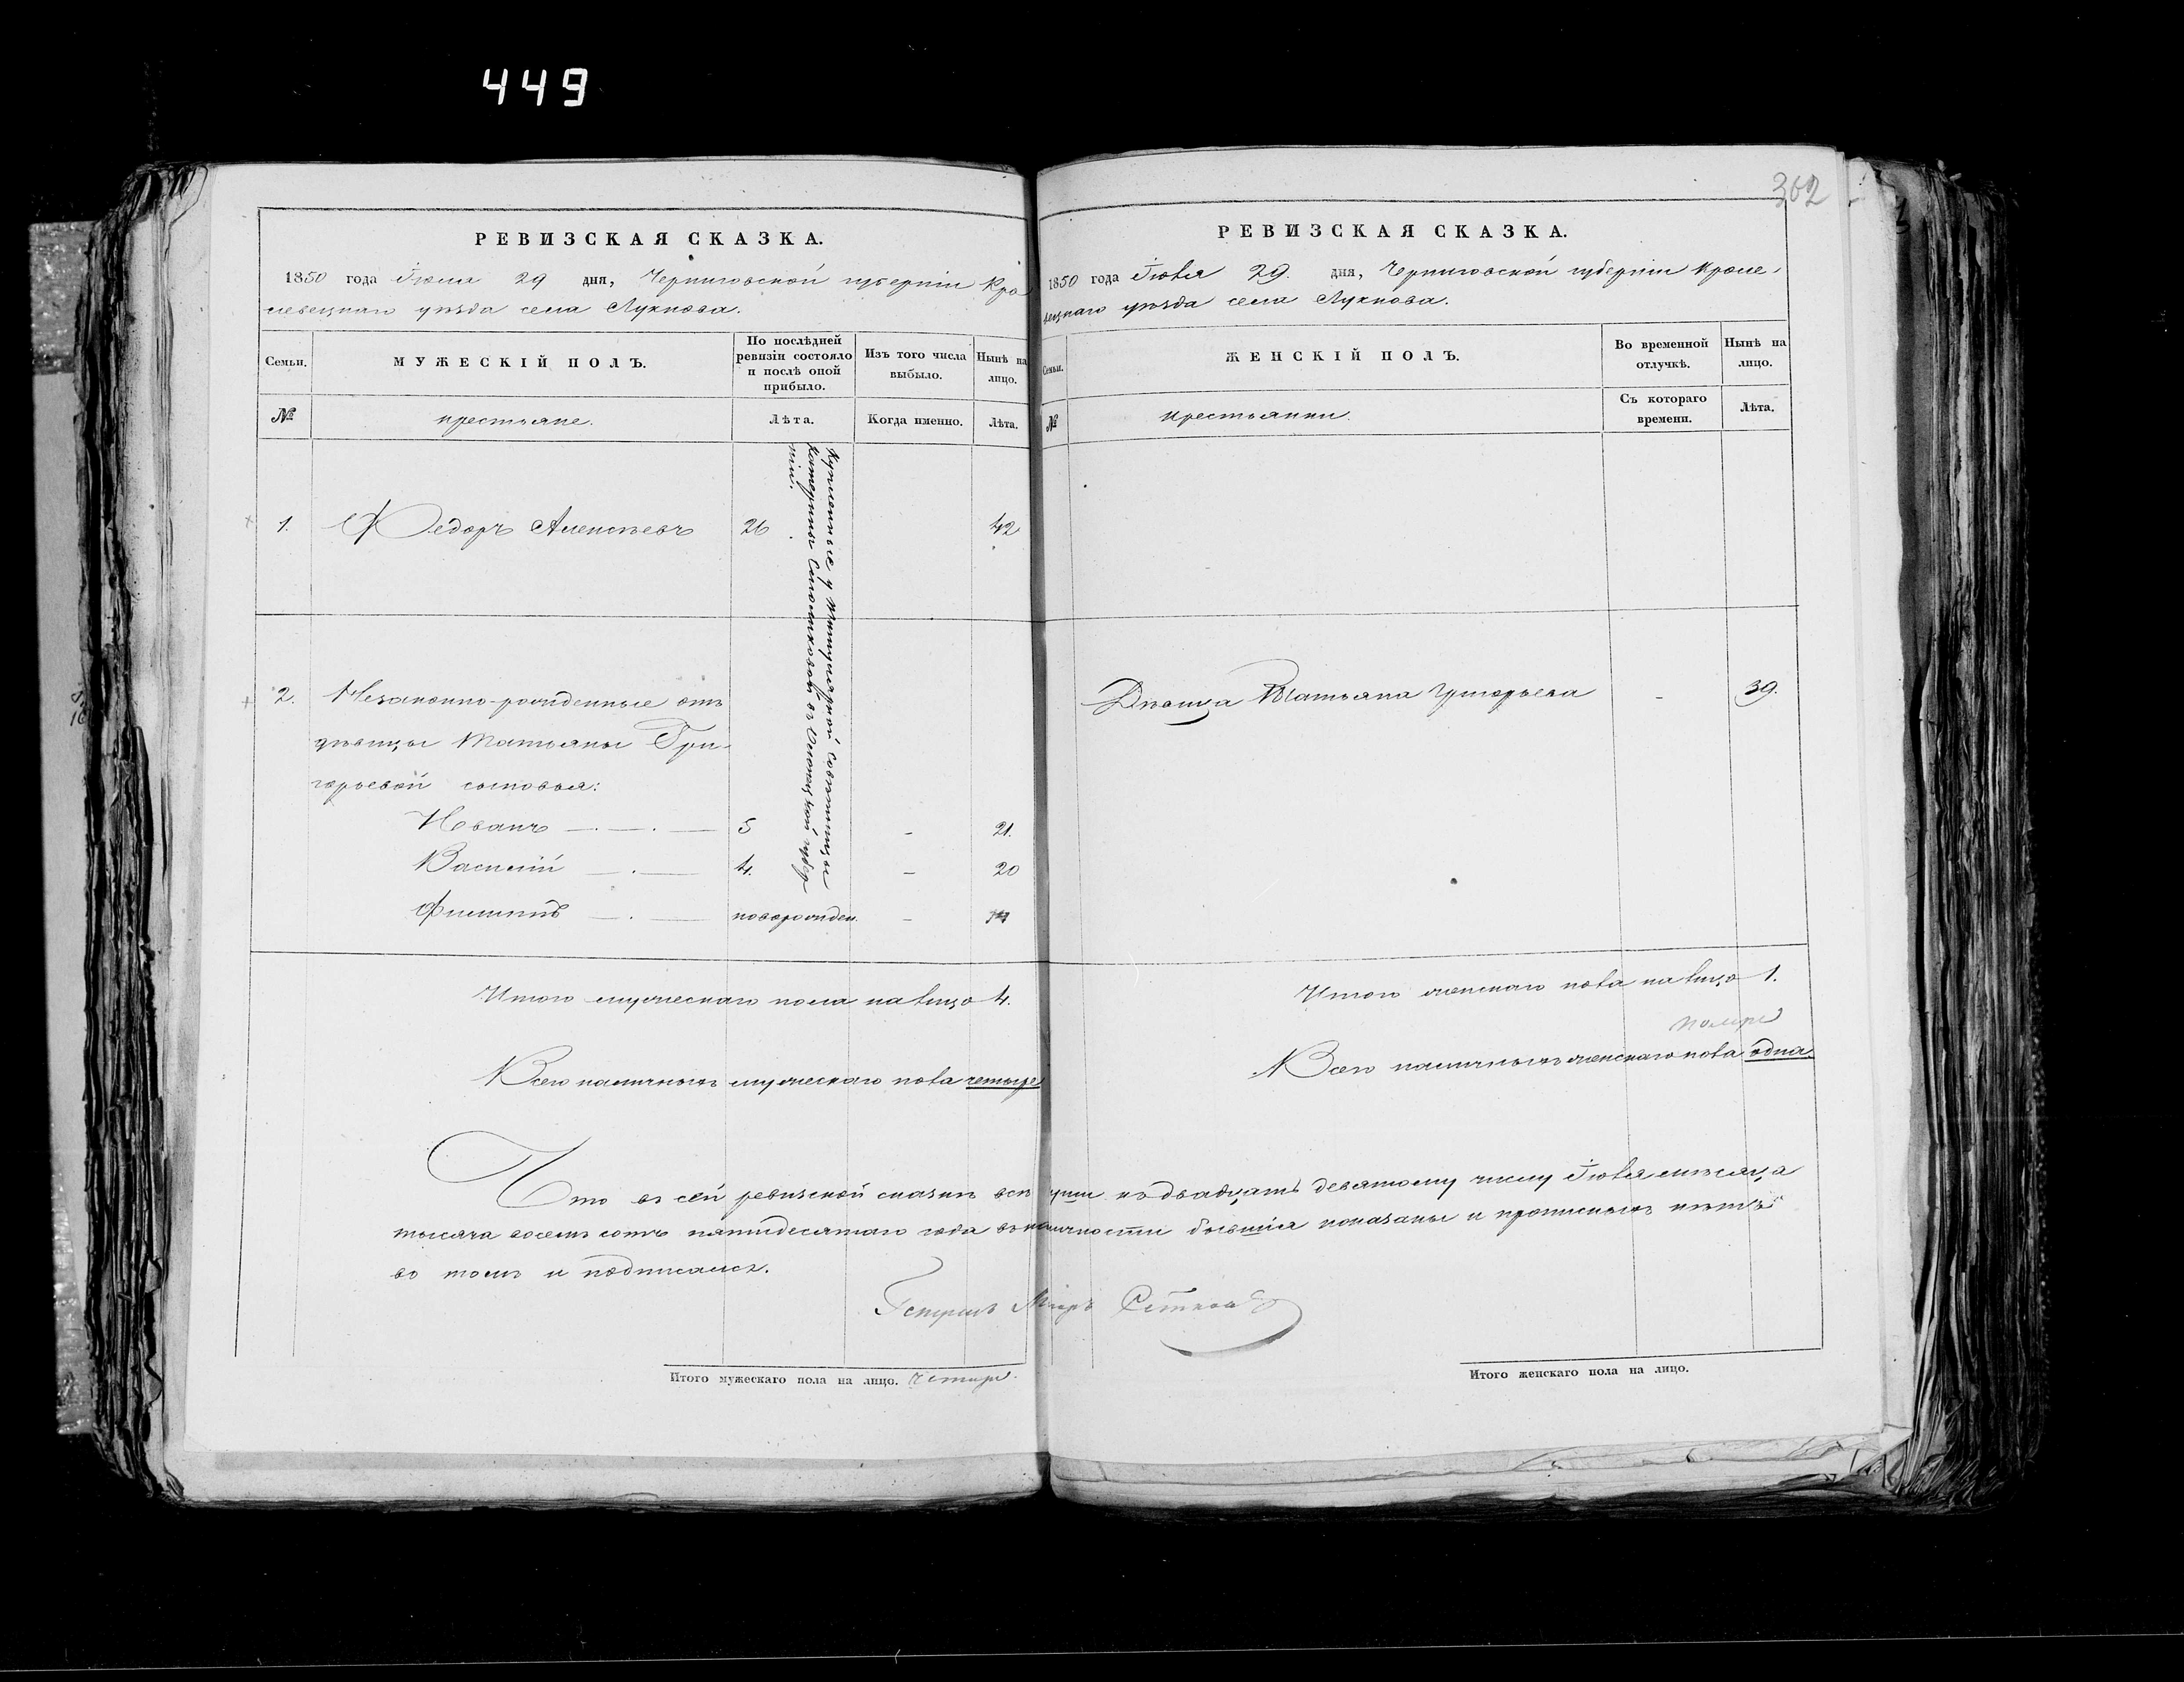 449
362
РЕВИЗСКАЯ СКАЗКА.
1850 года Іюля 29 дня, Черниговской губерніи Кро
левецкаго уѣзда села Лукнова.
Семьи.
МУЖЕСКІЙ ПОЛЪ.
По послѣдней ревизіи состояло и послѣ оной прибыло.
Изъ того числа выбыло.
Нынѣ на лицо.
№
крестьяне.
Лѣта.
Когда именно.
Лѣта.
1. Федоръ Алексѣевъ 26 42
Купленные у Титулярной Совѣтницы
Катерины въ губер
ніи.
2. Незаконно-рожденные отъ
дѣвицы Татьяны Гри-
горьевой сыновья:
Иванъ 5 - 21.
Василій 4. - 20
Филипъ новорожден. -
Итого мужескаго пола на лицо 4.
Всего наличныхъ мужескаго пола четыре
РЕВИЗСКАЯ СКАЗКА.
1850 года Іюля 29. дня, Черниговской губерніи Кроле-
вецкаго уѣзда села Лукнова.
Семьи.
ЖЕНСКІЙ ПОЛЪ.
Во временной отлучкѣ.
Нынѣ на лицо.
№
крестьянки.
Съ котораго времени.
Лѣта.
Дѣвица Татьяна Григорьева - 39.
Итого женскаго пола на лицо 1.
Всего наличныхъ женскаго пола одна.
Что въ сей ревизской сказкѣ всѣ души къ двадцать девятому числу Іюля мѣсяца
тысяча восемь сотъ пятидесятаго года въ наличности бывшія показаны и прописныхъ нѣтъ
въ томъ и подписался.
Маіоръ
Итого мужескаго пола на лицо. четыре.
Итого женскаго пола на лицо.